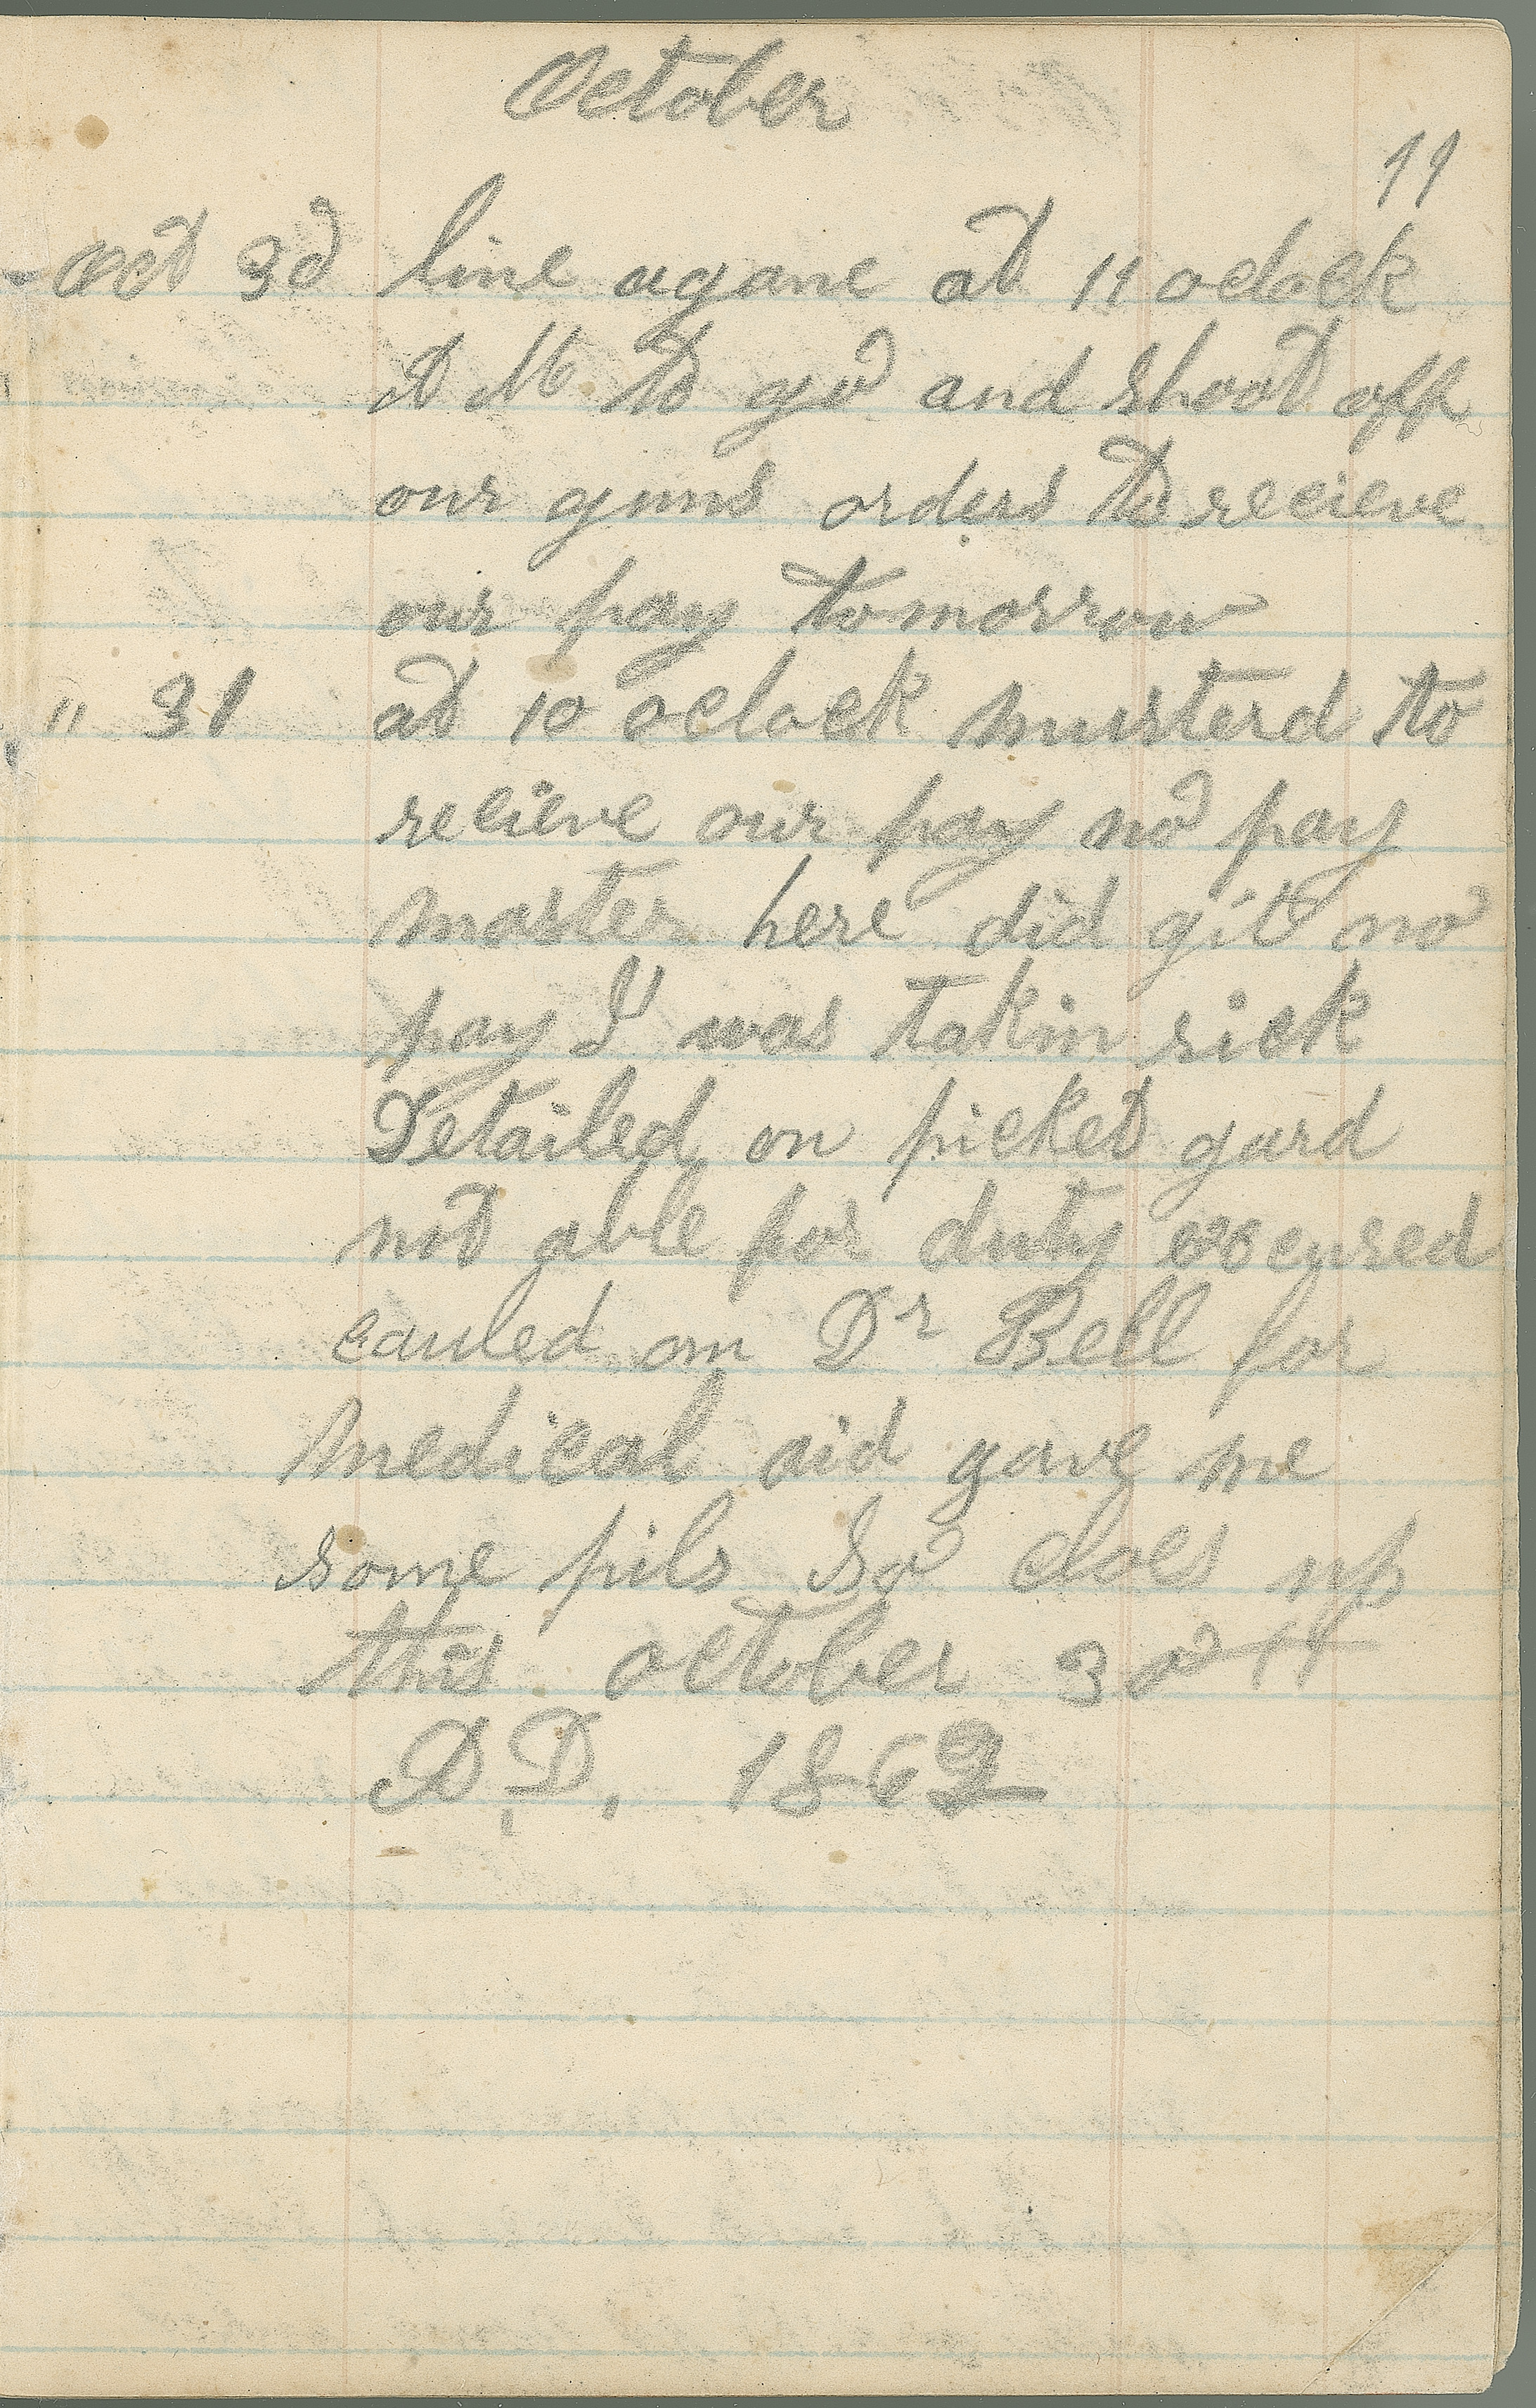 October
11
Oct 3d line agane at 11 oclock
A M to go and shoot off
our guns orders to recieve
our pay tomorrow
" 31 at 10 oclock musterd to
recieve our pay no pay
master here did git no
pay I was takin sick
Detailed on picket gard
not able for duty excused
cauled on Dr Bell for
medical aid gave me
some pils so cloes up
this october 30th
A.D. 1862